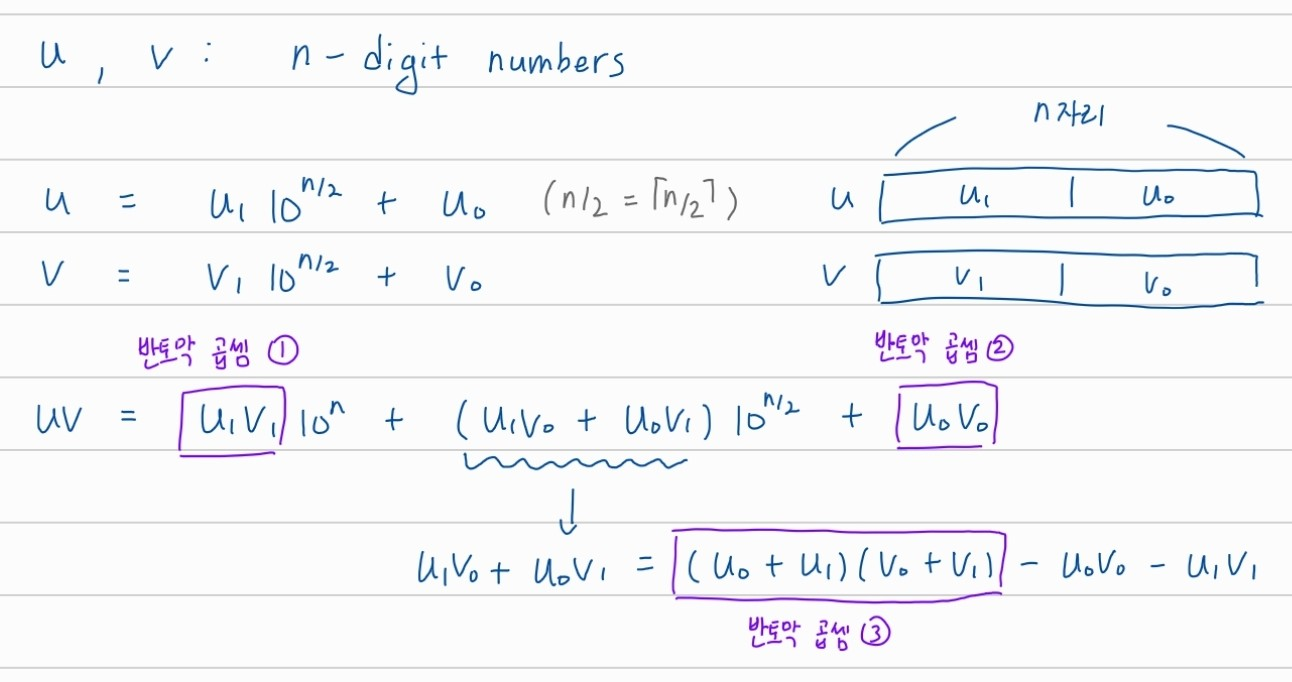 u , v : n - digit numbers
n자리
u = u₁ 10^{n/2} + u₀ (n/2 = ⌈n/2⌉) u u₁ | u₀
v = v₁ 10^{n/2} + v₀ v v₁ | v₀
반토막 곱셈 ① 반토막 곱셈 ②
uv = u₁v₁ 10ⁿ + (u₁v₀ + u₀v₁) 10^{n/2} + u₀v₀
↓
u₁v₀ + u₀v₁ = (u₀ + u₁)(v₀ + v₁) - u₀v₀ - u₁v₁
반토막 곱셈 ③